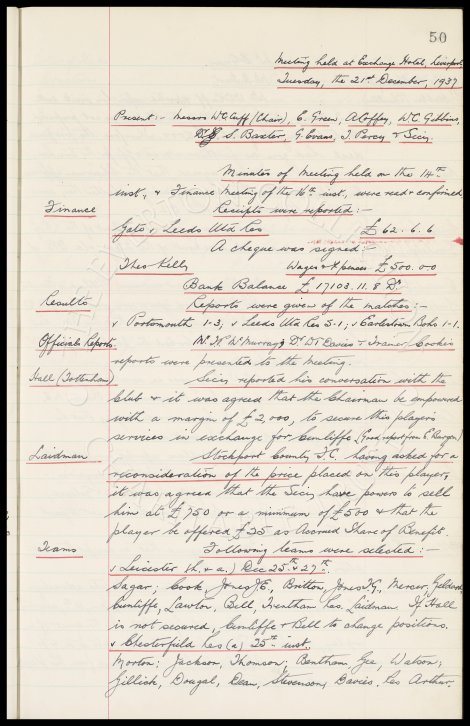 50
Meeting held at Exchange Hotel, Liverpool
Tuesday, the 21st December, 1937
Present:- Messrs W.C. Cuff (Chair), E. Green, A. Coffey, W.C. Gibbins,
Dr S. Baxter, G. Evans, J. Percy & Secy.
Minutes of Meeting held on the 14th
inst, & Finance Meeting of the 16th inst, were read & confirmed
Finance Receipts were reported:-
Gate v. Leeds Utd Res £62.6.6
A cheque was signed:-
Theo Kelly Wages & Xpenses £500.0.0
Bank Balance £17103.11.8 Dr
Results Reports were given of the matches:-
v Portsmouth 1-3, v Leeds Utd Res 5-1, v Earlestown Bohs 1-1.
Officials Reports. Mr. H.R. McMurray, Dr. D.T. Davies & Trainer Cooke's
reports were presented to the meeting.
Hall (Tottenham) Secy reported his conversation with the
Club & it was agreed that the Chairman be empowered
with a margin of £2,000, to secure this players
services in exchange for Cunliffe. (Good report from E. Bargen)
Laidman Stockport County F.C. having asked for a
reconsideration of the price placed on this player,
it was agreed that the Secy have powers to sell
him at £750 or a minimum of £500 & that the
player be offered £35 as Accrued Share of Benefit.
Teams Following teams were selected:-
v Leicester (h. & a.) Dec 25th & 27th.
Sagar; Cook, Jones J.E, Britton, Jones T.G., Mercer, Geldard
Cunliffe, Lawton, Bell, Trentham Res. Laidman. If Hall
is not secured, Cunliffe & Bell to change positions.
v Chesterfield Res (a) 25th inst.
Morton; Jackson, Thomson; Bentham, Gee, Watson;
Gillick, Dougal, Dean, Stevenson, Davies. Res Arthur.